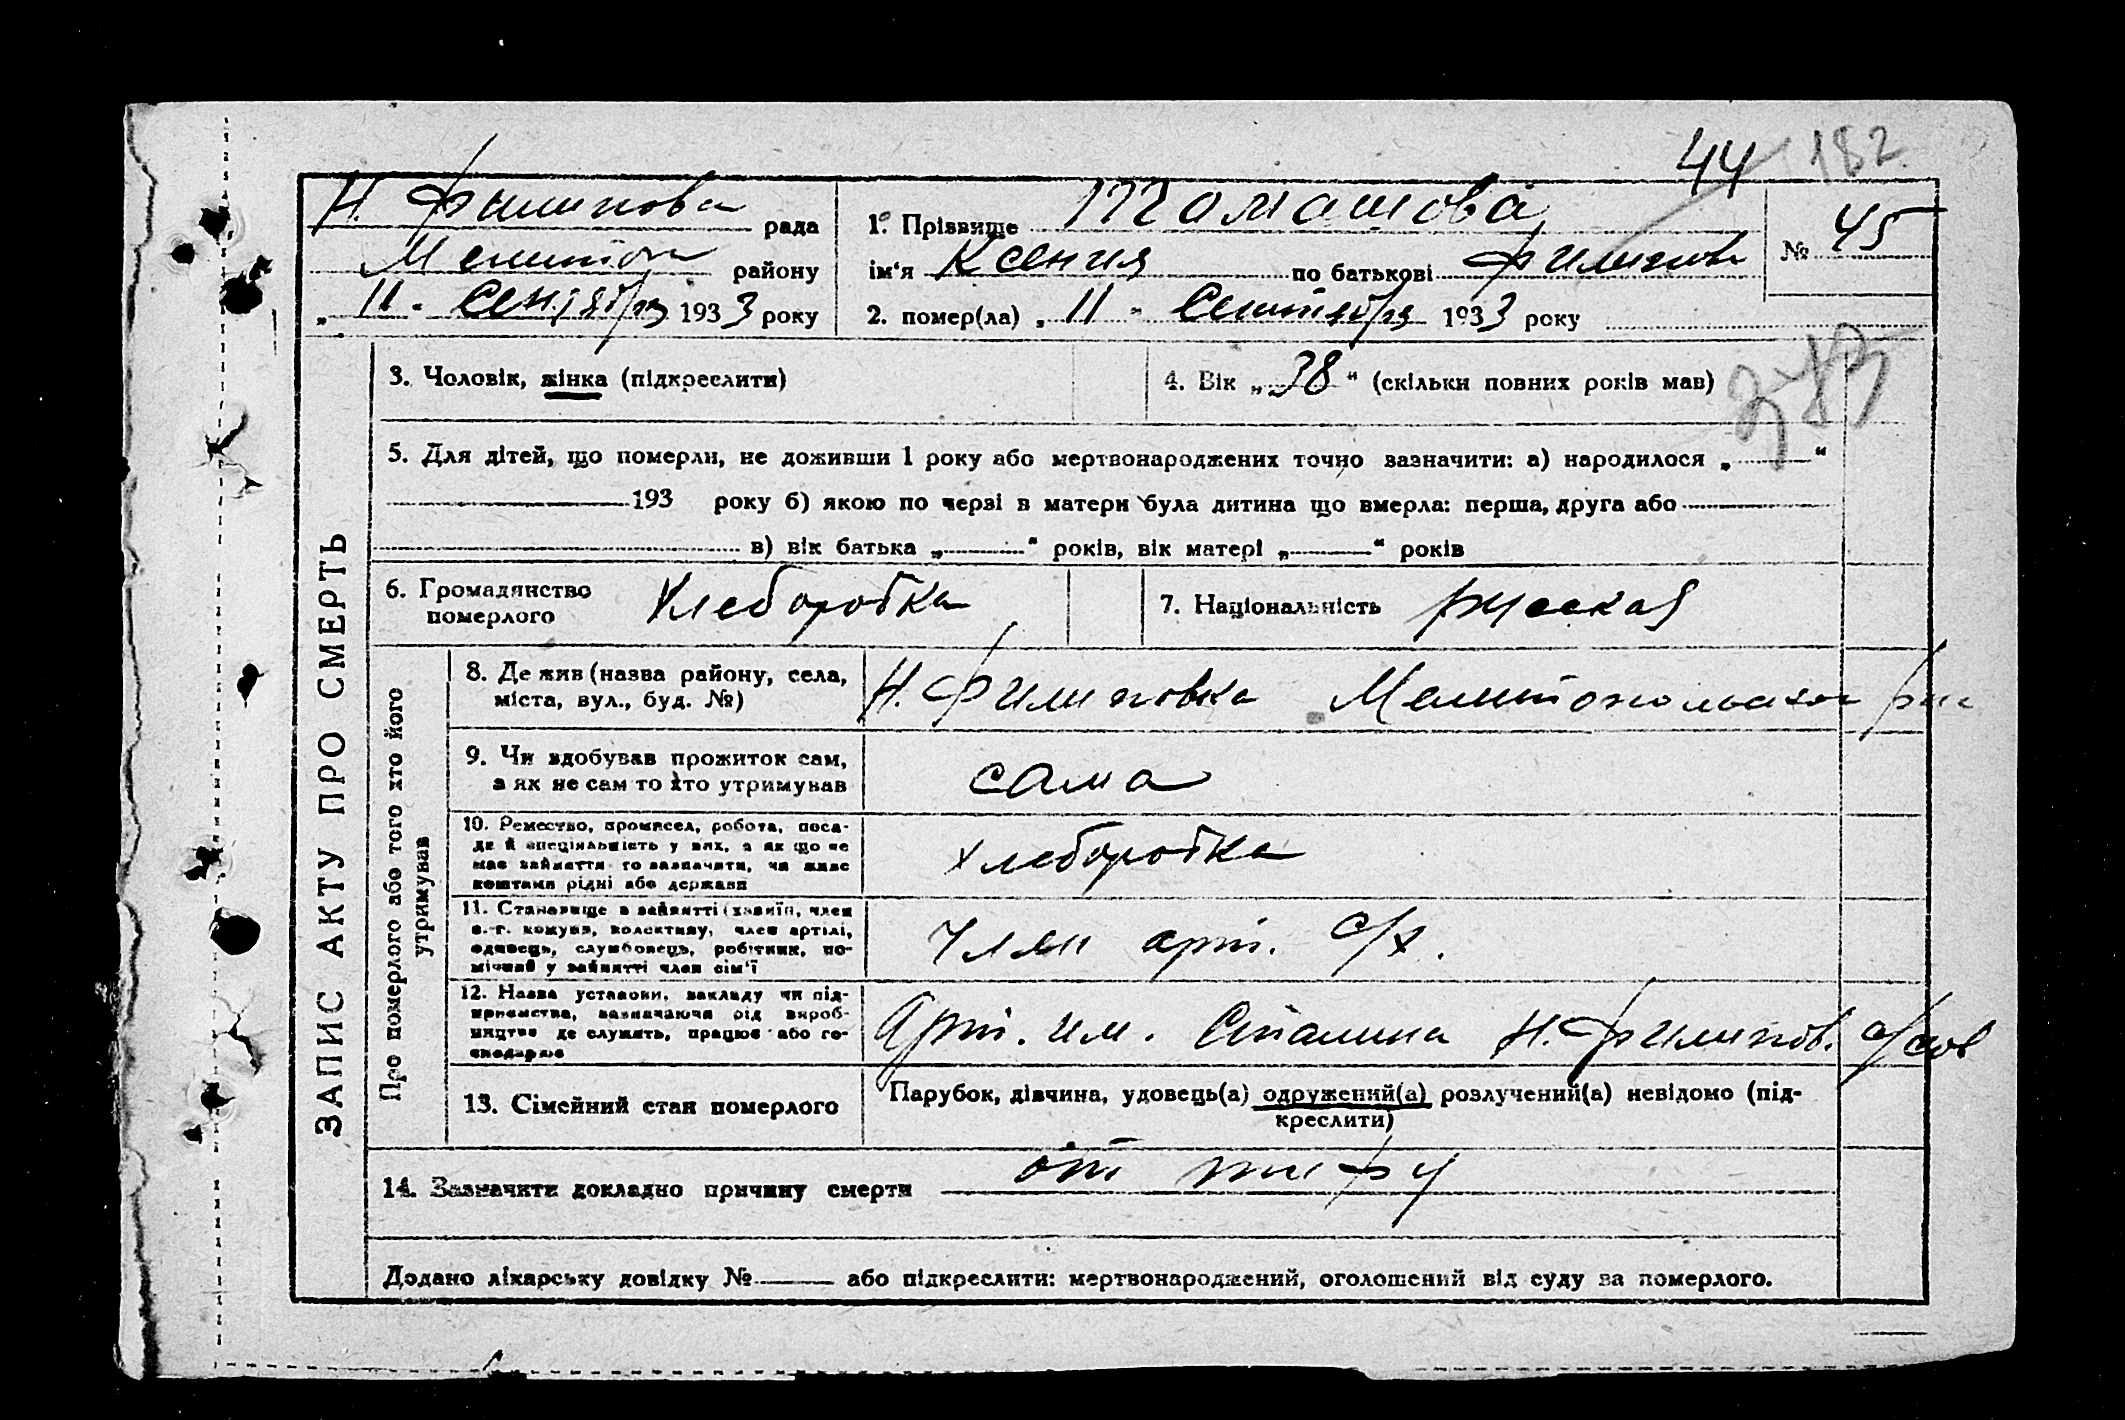 44 182
Н. Филипова рада
Мелитоп району
„ 11 " Сентября 1933 року
1. Прізвище Томашова
ім'я Ксения по батькові Филипов
2. помер(ла) „ 11 " Сентября 1933 року
№ 45
ЗАПИС АКТУ ПРО СМЕРТЬ
3. Чоловік, жінка (підкреслити)
4. Вік „ 38 " (скільки повних років мав)
5. Для дітей, що померли, не доживши 1 року або мертвонароджених точно зазначити: а) народилося „ "
193 року б) якою по черзі в матери була дитина що вмерла: перша, друга або
в) вік батька „ " років, вік матері „ " років
6. Громадянство
померлого
Хлеборобка
7. Національність русская
Про померлого або того хто його
утримував
8. Де жив (назва району, села,
міста, вул., буд. №)
Н. Филиповка Мелитопольского
9. Чи здобував прожиток сам,
а як не сам то хто утримував
сама
10. Ремество, промисел, робота, поса-
да й спеціяльність у них, а як що не
мав заняття то зазначити, чи живе
коштами рідні або держави
хлеборобка
11. Становище в занятті (хазяїн, член
с.-г. комуни, колективу, член артілі,
одинець, службовець, робітник, по-
мічний у занятті член сім'ї
Член арт. с/х.
12. Назва установи, закладу чи під-
приємства, зазначаючи рід вироб-
ництва де служить, працює або го-
сподарює
Арт. им. Сталина Н. Филипов. с/сов
13. Сімейний стан померлого
Парубок, дівчина, удовець(а) одружений(а) розлучений(а) невідомо (під-
креслити)
14. Зазначити докладно причину смерти от тифу
Додано лікарську довідку № або підкреслити: мертвонароджений, оголошений від суду за померлого.